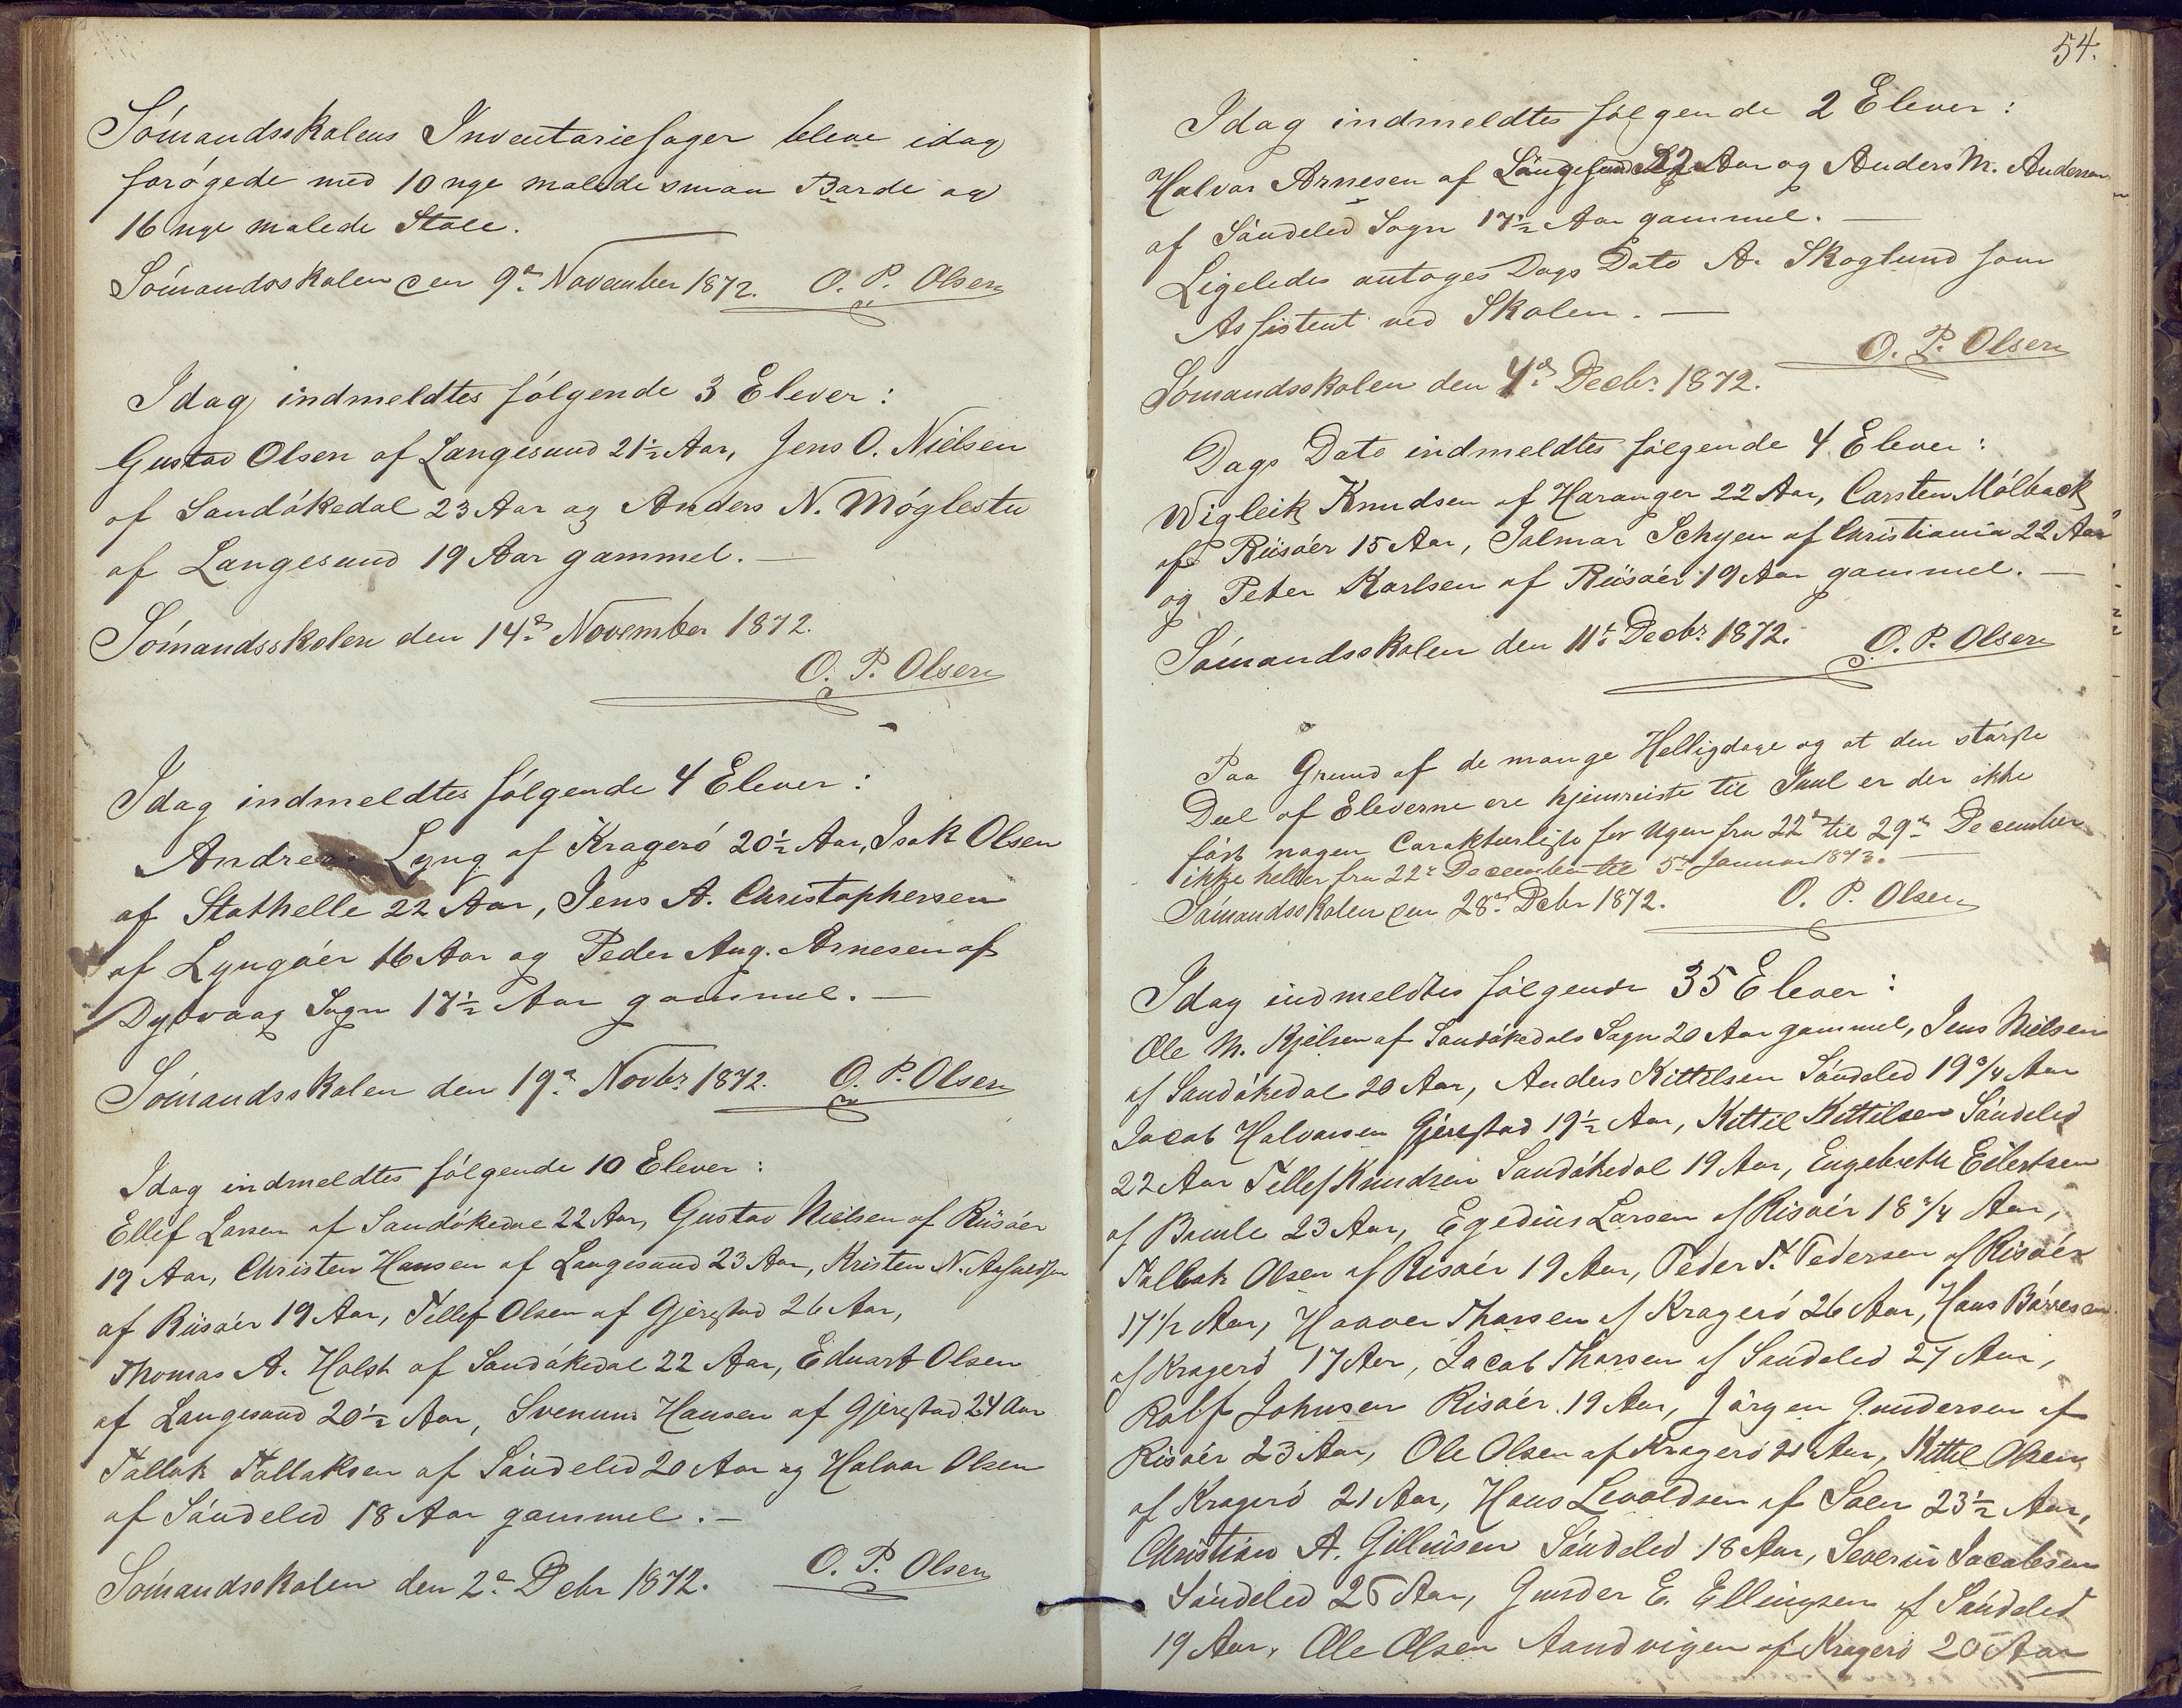 Sómandsskolens Inventariesager bleve idag
forógede med 10 nye malede smaa Borde og
16 nye malede Stole.
Sómandsskolen den 9de November 1872. O. P. Olsen
Idag indmeldtes fólgende 3 Elever:
Gustav Olsen af Langesund 21½ Aar, Jens O. Nielsen
af Sandókedal 23 Aar og Anders N. Móglestu
af Langesund 19 Aar gammel. —
Sómandsskolen den 14de November 1872.
O. P. Olsen
Idag indmeldtes fólgende 4 Elever:
Andreas Lyng af Krageró 20½ Aar, Isak Olsen
af Stathelle 22 Aar, Jens A. Christophersen
af Lyngóer 16 Aar og Peder Aug. Arnesen af
Dybvaag Sogn 17½ Aar gammel. —
Sómandsskolen den 19de Novbr 1872. O. P. Olsen
Idag indmeldtes fólgende 10 Elever:
Ellef Larsen af Sandókedal 22 Aar, Gustav Nielsen af Riisóer
19 Aar, Christen Hansen af Langesund 23 Aar, Kristen N.
af Riisóer 19 Aar, Tellef Olsen af Gjerestad 26 Aar,
Thomas A. Holst af Sandókedal 22 Aar, Eduart Olsen
af Langesund 20½ Aar, Svenum Hansen af Gjerestad 24 Aar
Tallak Tallaksen af Sóndeled 20 Aar og Halvor Olsen
af Sóndeled 18 Aar gammel. —
Sómandsskolen den 2de Debr 1872. O. P. Olsen
54.
Idag indmeldtes fólgende 2 Elever:
Halvor Arnesen af Langesund 22 Aar og Anders M. Andersen
af Sóndeled Sogn 17½ Aar gammel. —
Ligeledes antoges Dags Dato A. Skoglund som
Assistent ved Skolen. —
O. P. Olsen
Sómandsskolen den 4de Decbr 1872.
Dags Dato indmeldtes fólgende 4 Elever:
Wigleik Knudsen af Haranger 22 Aar, Carsten Mólback
af Riisóer 15 Aar, Jalmar Schyen af Christiania 22 Aar
og Peter Karlsen af Riisóer 19 Aar gammel. —
Sómandsskolen den 11te Decbr 1872. O. P. Olsen
Paa Grund af de mange Helligdage og at den stórste
Deel af Eleverne ere hjemreiste til Juul er der ikke
fórt nogen Carakteerliste for Ugen fra 22de til 29de December
ikke heller fra 22de December til 5te Januar 1873. —
Sómandsskolen den 28de Debr 1872. O. P. Olsen
Idag indmeldtes fólgende 35 Elever:
Ole M. Kjelsen af Sandókedals Sogn 20 Aar gammel, Jens Nielsen
af Sandókedal 20 Aar, Anders Kittilsen Sóndeled 19¾ Aar
Jacob Halvorsen Gjerestad 19½ Aar, Kittil Kittilsen Sóndeled
22 Aar Tellef Knudsen Sandókedal 19 Aar, Engebreth Eilertsen
af Bamle 23 Aar, Egedius Larsen af Risóer 18¾ Aar,
Tallak Olsen af Risóer 19 Aar, Peder T. Pedersen af Risóer
17½ Aar, Haaver Thorsen af Krageró 26 Aar, Hans Bórresen
af Krageró 17 Aar, Jacob Thorsen af Sandeled 27 Aar,
Rolf Johnsen Risóer 19 Aar, Jórgen Gundersen af
Risóer 23 Aar, Ole Olsen af Krageró 21 Aar, Kittil Olsen
af Krageró 21 Aar, Hans Levoldsen af Solum 23½ Aar,
Christian A. Gilleusen Sóndeled 18 Aar, Severin Jacobsen
Sóndeled 25 Aar, Gunder E. Ellingsen af Sóndeled
19 Aar, Ole Olsen Aandvigen af Krageró 20 Aar